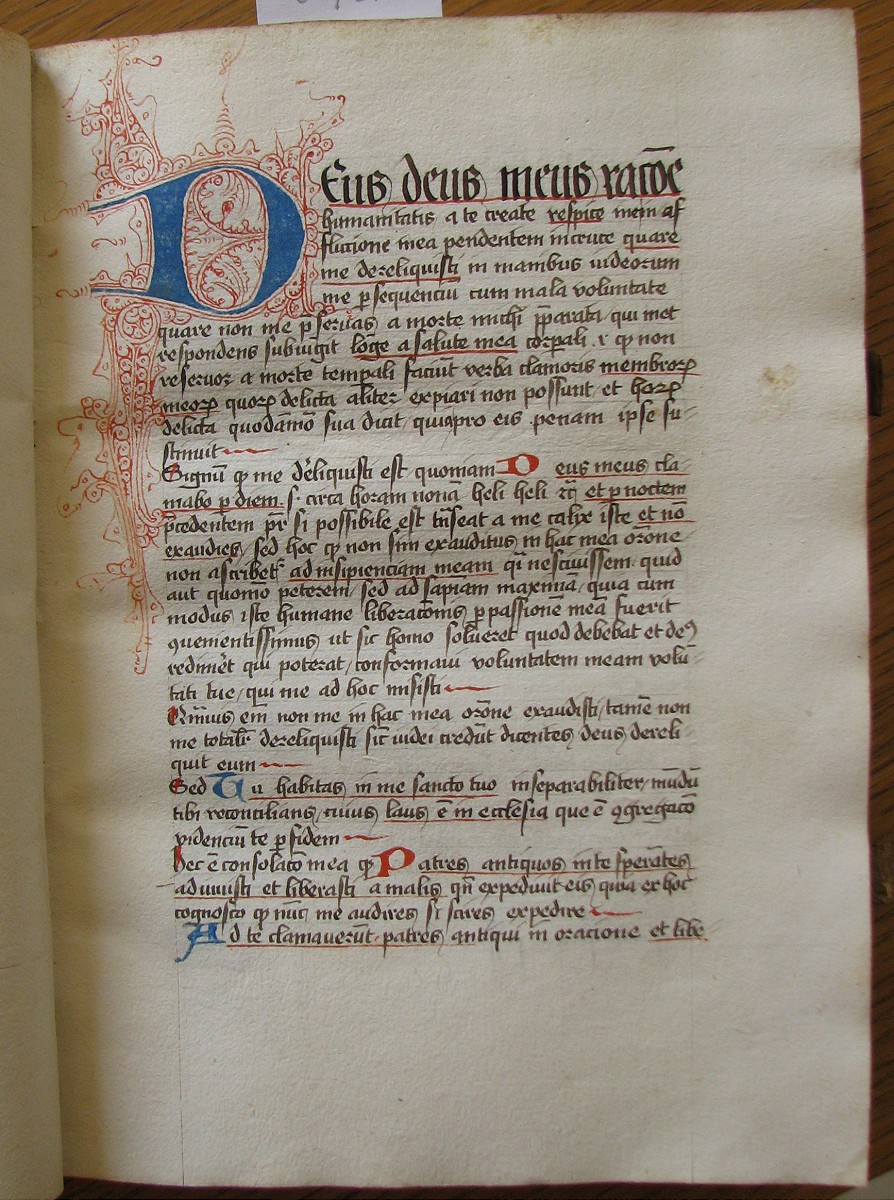 DEus deus meus rac̄oe
humanitatis a te create respice mem af
flictione mea pendentem in cruce quare
me dereliquisti in manibus iudeorum
me ꝑsequenciū cum mala voluntate
quare non me p̄seruas a morte michi p̄parata, qui met
respondens subiungit longe a salute mea corꝑali .i. ꝙ non
reseruor a morte temꝑali faciūt verba clamoris membroꝝ
meoꝝ quoꝝ delicta aliter expiari non possunt et hoꝝ
delicta quodāmō sua dicit, quia pro eis penam ipse su-
stinuit
Signū ꝙ me dēliquisti est quoniam Deus meus cla-
mabo ꝑ diem .s. circa horam nonā heli heli et p noctem
p̄cedentem pr̄ si possibile est trā̄seat a me calix iste et nō
exaudies, sed hoc ꝙ non sim exauditus in hac mea or̄one
non ascribet᷑ ad insipienciam meam q̄ nesciuissem quid
aut quomō peterem, sed ad sap̄iam maximā, quia cum
modus iste humane liberac̄onis ꝑ passionē mea fuerit
ꝯuenientissimus, ut sic homo solueret quod debebat et deꝰ
redimēt qui poterat, conformaui voluntatem meam volū-
tati tue, qui me ad hoc misisti
Quāuis em̄ non me in hac mea or̄one exaudisti, tamē non
me totalit᷑ dereliquisti sic̄ iudei credūt dicentes deus dereli-
quit eum
Sed Tu habitas in me sancto tuo inseparabiliter, mūdū
tibi reconcilians, cuius laus ē in ecclesia que ē ꝯgregac̄o
videnciū te ꝑ fidem
Hec ē consolac̄o mea ꝙ Patres antiquos in te sperātes
adiuuisti et liberasti a malis qn̄ expediuit eis, quia ex hoc
cognosco ꝙ nūc me audires si scires expedire
Ad te clamauerūt patres antiqui in oracione et libe-